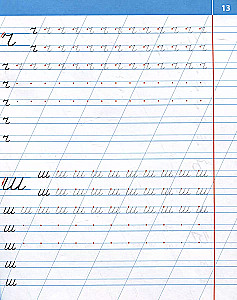 13
ч ч ч ч ч ч ч ч ч ч ч ч ч ч
ч ч ч ч ч ч ч ч ч ч ч ч ч
ч ч ч ч ч ч ч ч ч ч ч ч ч ч ч
ч
ч
ч
ч
ш ш ш ш ш ш ш ш ш ш ш
ш ш ш ш ш ш ш ш ш ш
ш ш ш ш ш ш ш ш ш ш ш ш
ш
ш
ш
ш